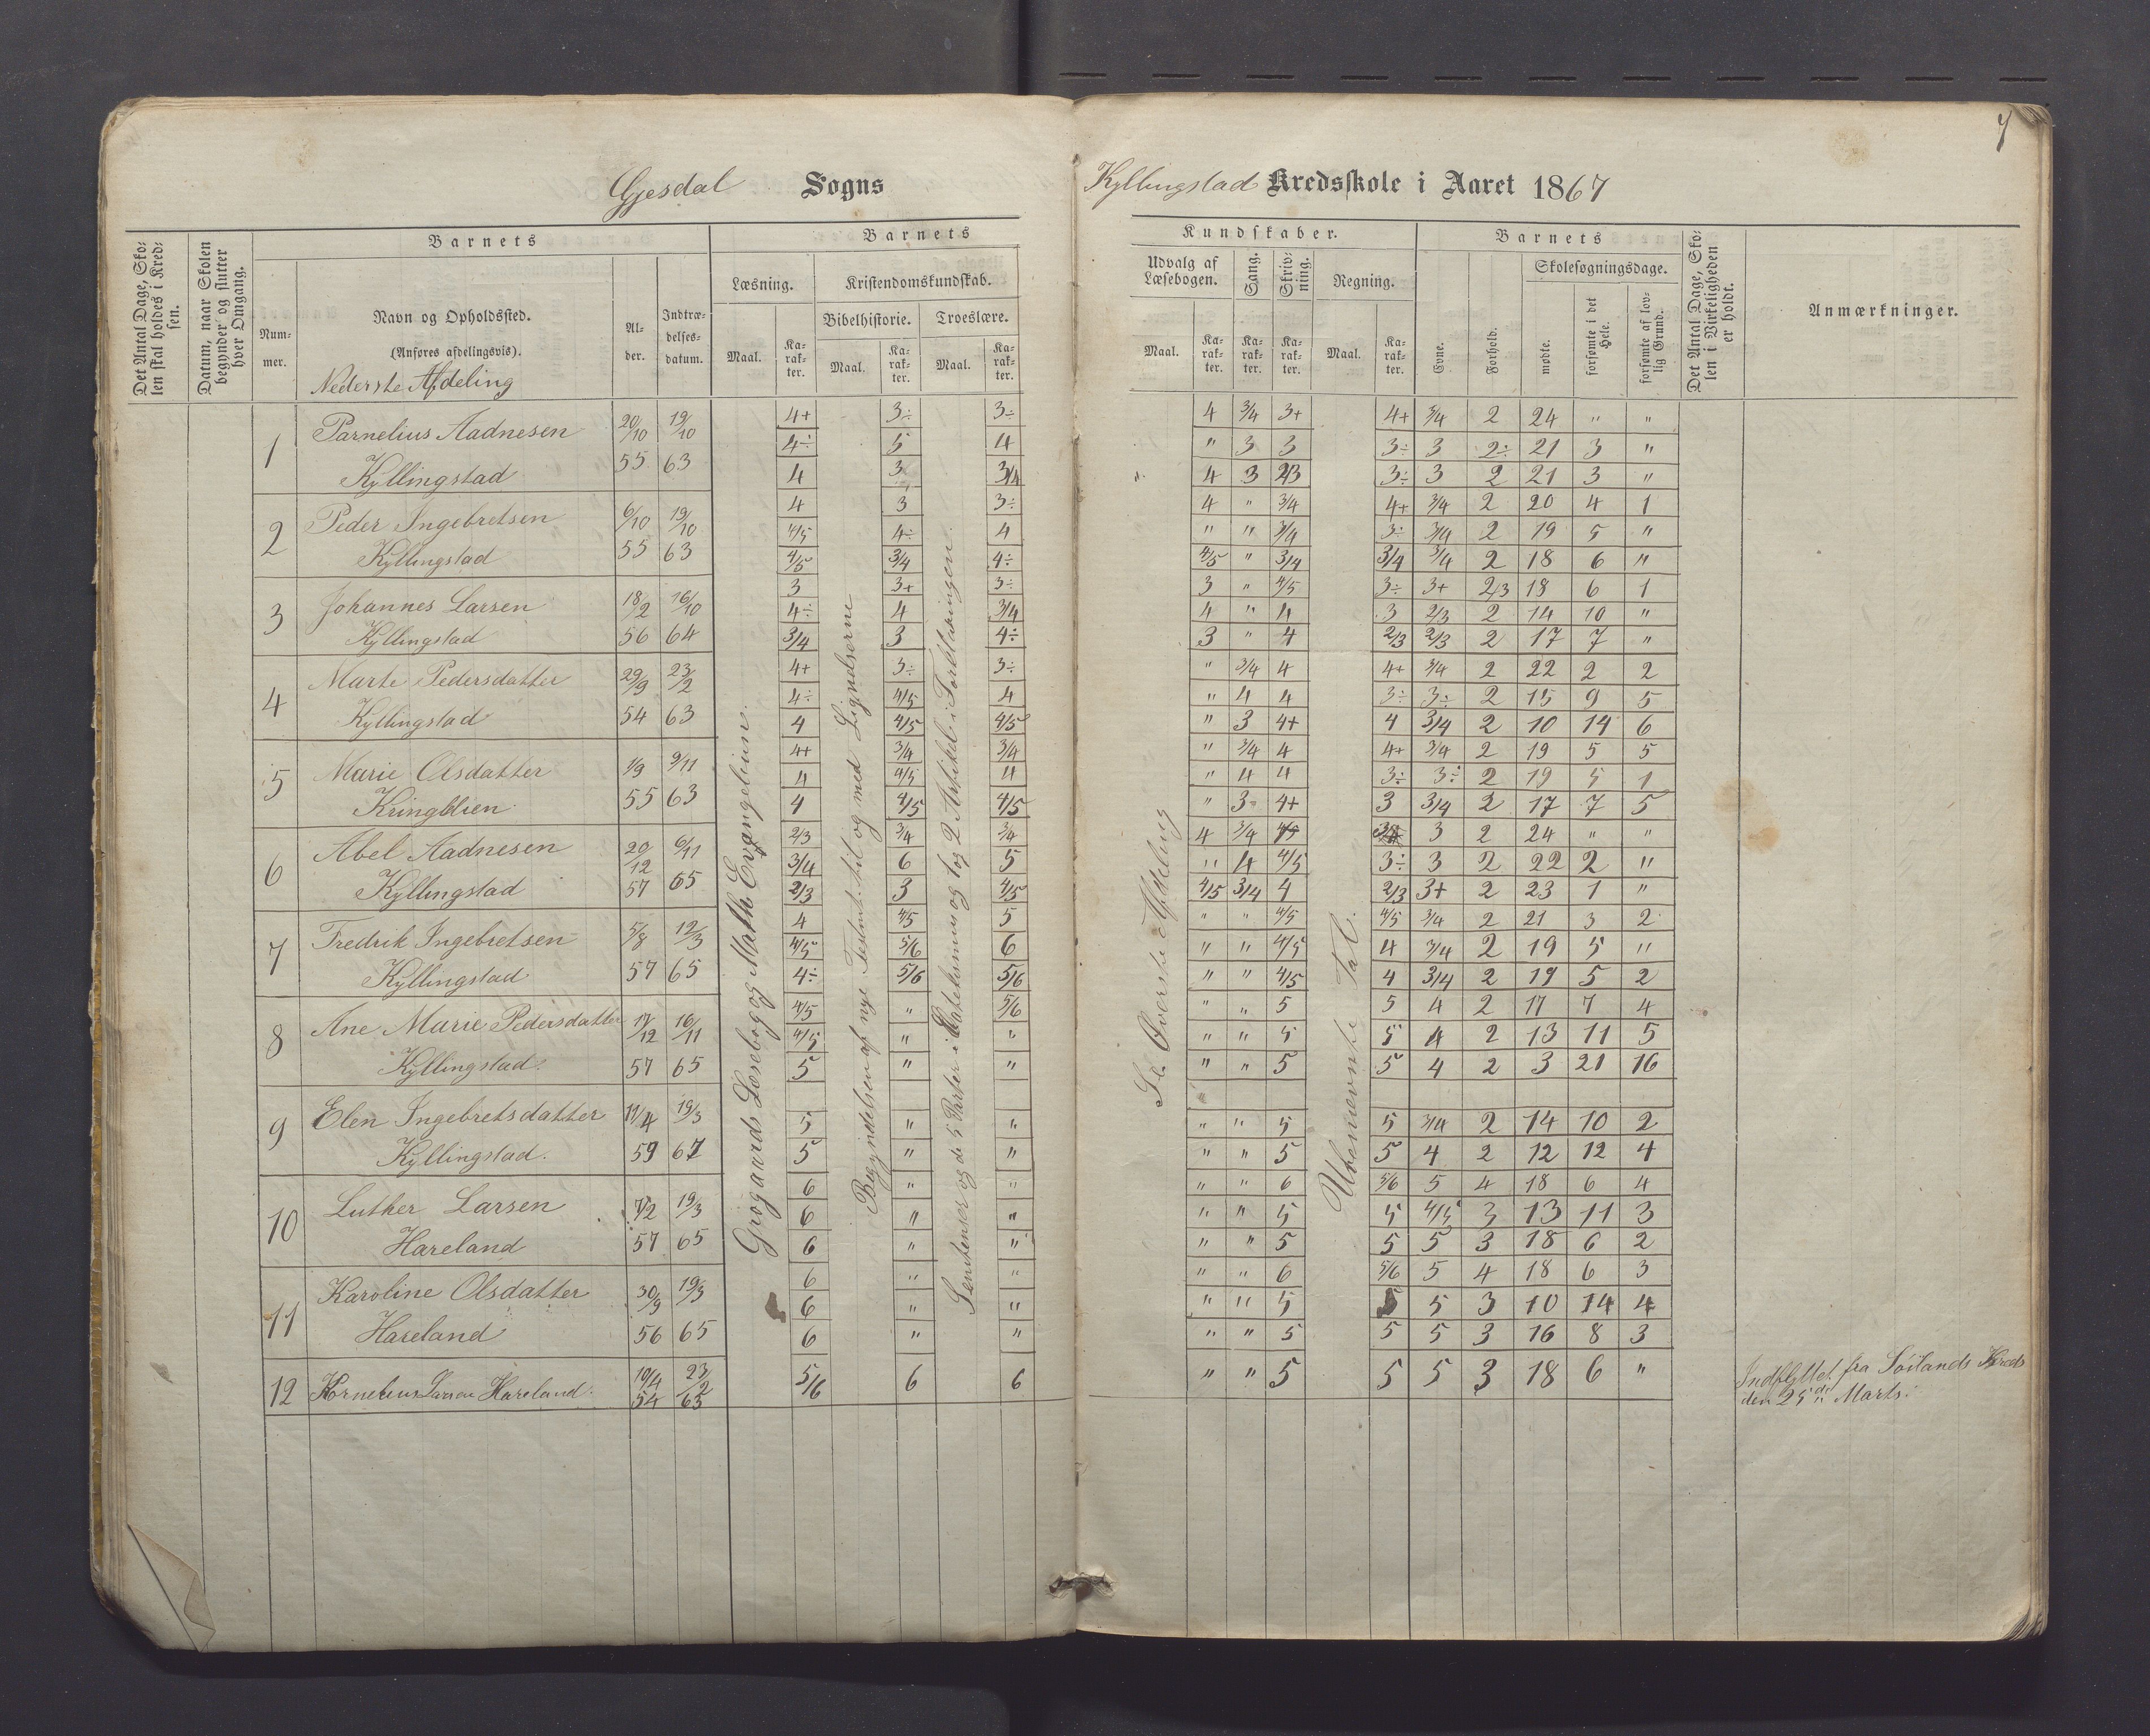 7
Gjesdal Sogns
Kyllingstad Kredsskole i Aaret 1867
Det Antal Dage, Skolen skal holdes i Kredsen.
Datum, naar Skolen begynder og slutter hver Omgang.
Barnets
Nummer.
Navn og Opholdssted.
(Anføres afdelingsvis).
Nederste Afdeling
Alder.
Indtrædelsesdatum.
Barnets
Læsning.
Maal.
Karakter.
Kristendomskundskab.
Bibelhistorie.
Maal.
Karakter.
Troeslære.
Maal.
Karakter.
Kundskaber.
Udvalg af Læsebogen.
Maal.
Karakter.
Sang.
Karakter.
Skrivning.
Karakter.
Regning.
Maal.
Karakter.
Barnets
Evne.
Forhold.
Skolesøgningsdage.
mødte.
forsømte i det Hele.
forsømte af lovlig Grund.
Det Antal Dage, Skolen i Virkeligheden er holdt.
Anmærkninger.
Grøgaards Læsebog og Math Evangelium.
Begyndelsen af nye Testmt. til og med Lignelserne
Sentenser og de 5 Parter i Katekismus og 1 og 2 Artikel i Forklaringen.
Se Øverste Afdeling
Ubenævnte Tal.
1 Parnelius Aadnesen 20/10 19/10 4+ 3÷ 3÷ 4 3/4 3+ 4+ 3/4 2 24 " "
55 63 4÷ 5 4 " 3 3 3÷ 3 2÷ 21 3 "
Kyllingstad 4 3 3/4 4 3 2/3 3÷ 3 2 21 3 "
2 Peder Ingebretsen 6/10 19/10 4 3 3÷ 4 " 3/4 4+ 3/4 2 20 4 1
55 63 4/5 4÷ 4 " " 3/4 3÷ 3/4 2 19 5 "
Kyllingstad 4/5 3/4 4÷ 4/5 " 3/4 3/4 3/4 2 18 6 "
3 Johannes Larsen 18/2 16/10 3 3+ 3÷ 3 " 4/5 3÷ 3+ 2/3 18 6 1
4÷ 4 3/4 4 " 4 3 2/3 2 14 10 "
Kyllingstad 56 64 3/4 3 4÷ 3 " 4 2/3 2/3 2 17 7 "
4 Marte Pedersdatter 29/9 23/2 4+ 3÷ 3÷ " 3/4 4 4+ 3/4 2 22 2 2
4÷ 4/5 4 " 4 4 3÷ 3÷ 2 15 9 5
Kyllingstad 54 63 4 4/5 4/5 " 3 4+ 4 3/4 2 10 14 6
5 Marie Olsdatter 1/9 9/11 4+ 3/4 3/4 " 3/4 4 4+ 3/4 2 19 5 5
4 4/5 4 " 4 4 3÷ 3÷ 2 19 5 1
Kringlelien 55 63 4 4/5 4/5 " 3 4+ 3 3/4 2 17 7 5
6 Abel Aadnesen 20/12 6/11 2/3 3/4 3/4 4 3/4 4/5 3/4 3 2 24 " "
3/4 6 5 " 4 4/5 3÷ 3 2 22 2 "
Kyllingstad 57 65 2/3 3 4/5 4/5 3/4 4 2/3 3+ 2 23 1 "
7 Fredrik Ingebretsen 5/8 12/3 4 4/5 5 " " 4/5 4/5 3/4 2 21 3 2
4/5 5/6 6 " " 4/5 4 3/4 2 19 5 "
Kyllingstad 57 65 4÷ 5/6 5/6 " " 4/5 4 3/4 2 19 5 2
8 Ane Marie Pedersdatter 17/12 16/11 4/5 " 5/6 " " 5 5 4 2 17 7 4
4/5 " " " " 5 5 4 2 13 11 5
Kyllingstad. 57 65 5 " " " " 5 5 4 2 3 21 16
9 Elen Ingebretsdatter 11/4 19/3 5 " " " " 5 5 3/4 2 14 10 2
Kyllingstad. 59 67 5 " " " " 5 5 4 2 12 12 4
10 Luther Larsen 7/2 19/3 6 " " " " 6 5/6 5 4 18 6 4
6 " " " " 5 5 4/5 3 13 11 3
Hareland 57 65 6 " " " " 5 5 5 3 18 6 2
11 Karoline Olsdatter 30/9 19/3 6 " " " " 6 5/6 5 4 18 6 3
6 " " " " 5 5 5 3 10 14 4
Hareland 56 65 6 " " " " 5 5 5 3 16 8 3
12 Kornelius Larsen Hareland. 10/4 54 23/2 63 5/6 6 6 " " 5 5 5 3 18 6 "
Indflyttet fra Soilands Kreds
den 25de Marts.